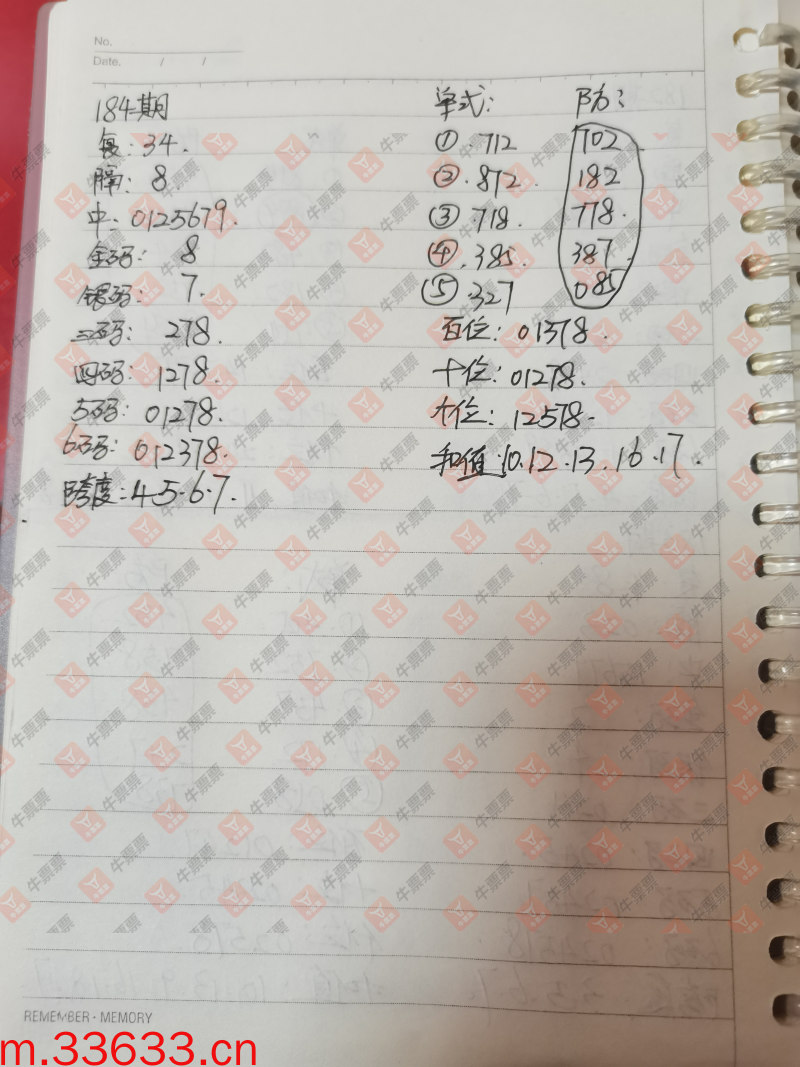 No.
Date. / /
184期
复: 34.
隔: 8.
中、0125679.
金码: 8
银码: 7.
三码: 278.
四码: 1278.
5码: 01278.
6码: 012378.
跨度: 4.5.6.7.
单式: 防:
① .712 702
② .872. 182
③ .718. 778.
④ .385. 387.
⑤ .327 085
百位: 01378.
十位: 01278.
个位: 12578.
和值: 10.12.13.16.17.
REMEMBER·MEMORY
m.33633.cn
牛票票